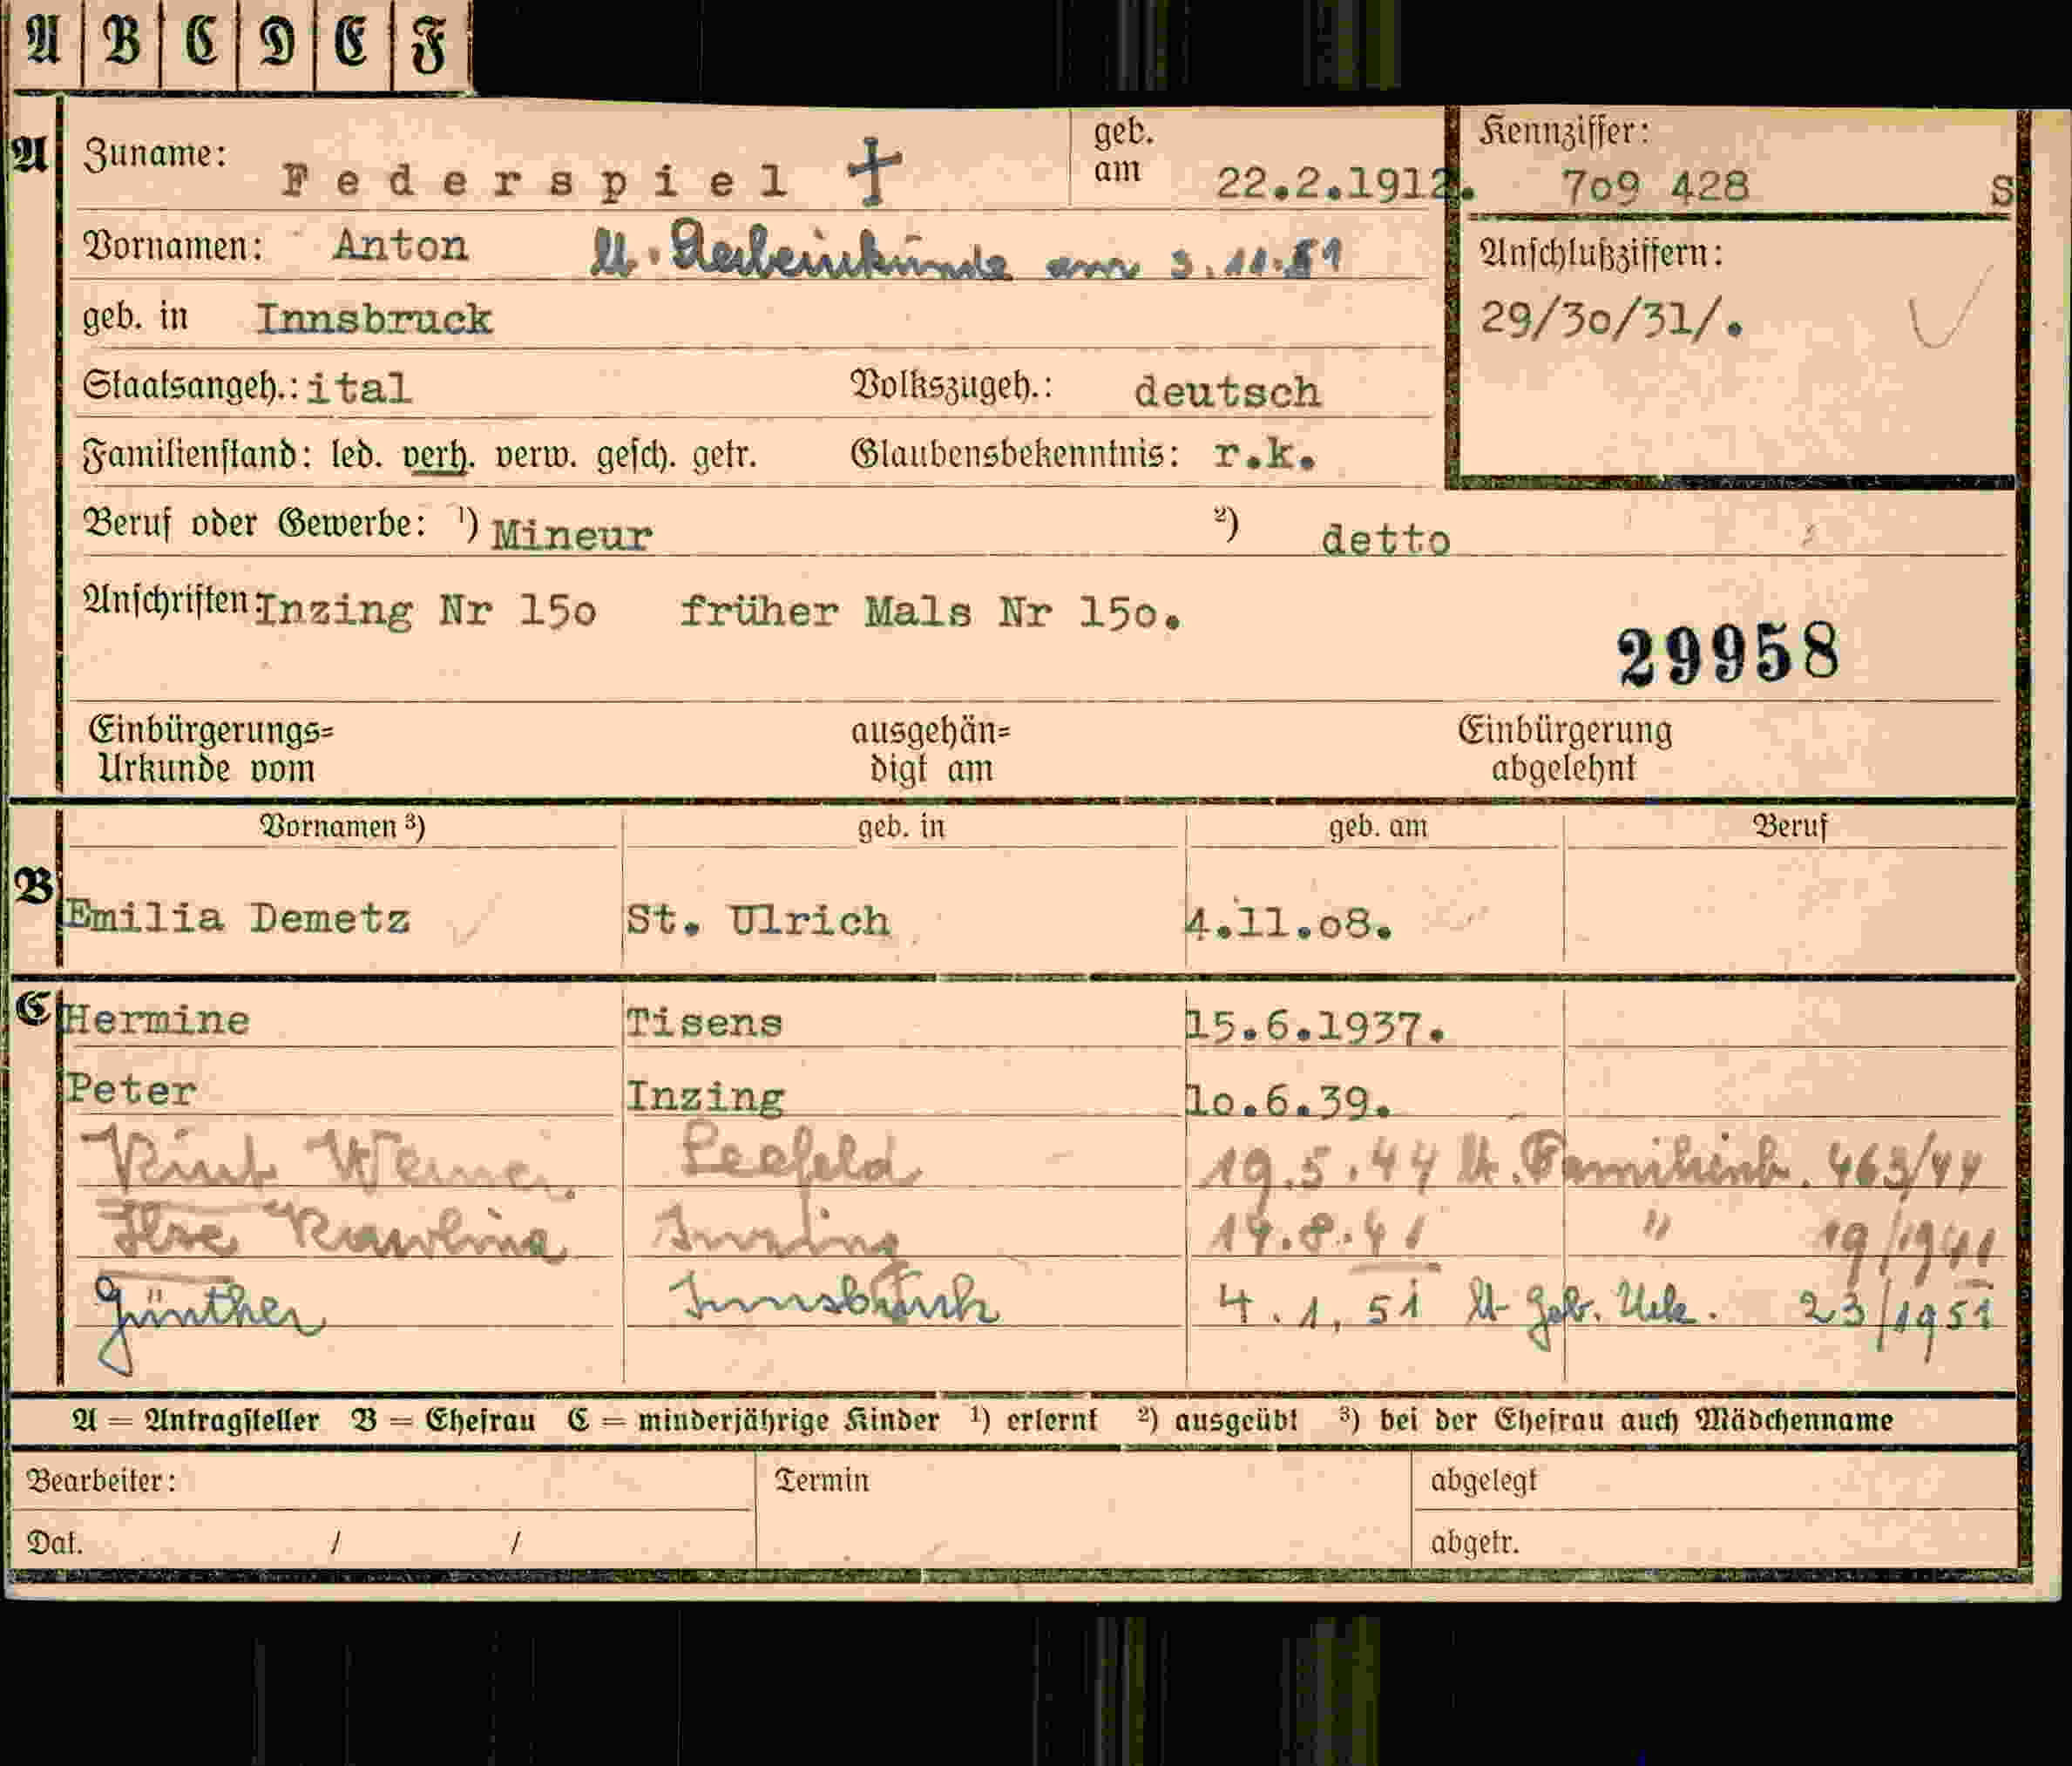 A B C D E F
A Zuname: Federspiel † geb. am 22.2.1912. Kennziffer: 709 428 S
Vornamen: Anton lt. Sterbeurkunde am 3.11.51 Anschlußziffern:
29/30/31/.
geb. in Innsbruck
Staatsangeh.: ital Volkszugeh.: deutsch
Familienstand: led. verh. verw. gesch. getr. Glaubensbekenntnis: r.k.
Beruf oder Gewerbe: ¹) Mineur ²) detto
Anschriften: Inzing Nr 150 früher Mals Nr 150.
29958
Einbürgerungs= Urkunde vom ausgehän= digt am Einbürgerung abgelehnt
Vornamen ³) geb. in geb. am Beruf
B Emilia Demetz St. Ulrich 4.11.08.
C Hermine Tisens 15.6.1937.
Peter Inzing 10.6.39.
Werner Seefeld 19.5.44 lt. Familienb. 463/44
Ilse Karolina Inzing 14.8.41 " 19/1941
Günther Innsbruck 4.1.51 lt. Geb. Urk. 23/1951
A = Antragsteller B = Ehefrau C = minderjährige Kinder ¹) erlernt ²) ausgeübt ³) bei der Ehefrau auch Mädchenname
Bearbeiter: Termin abgelegt
Dat. / / abgetr.